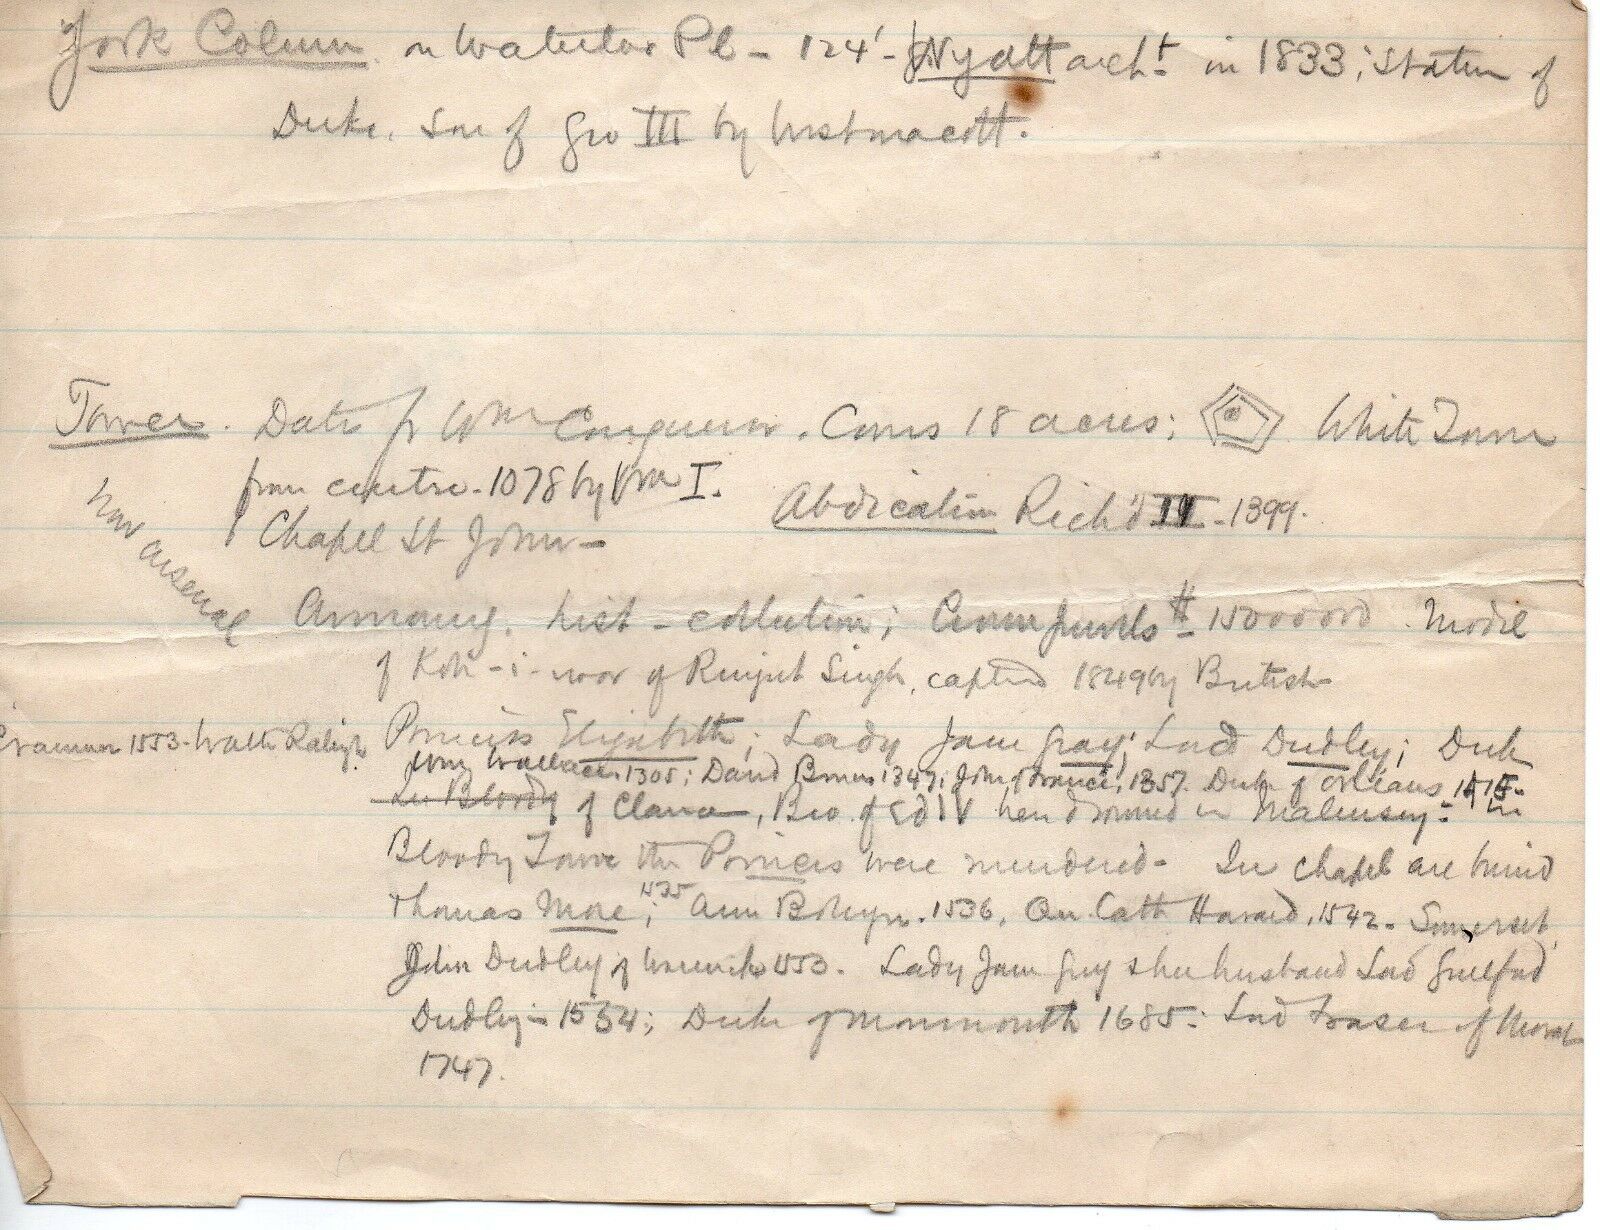 York Column on Waterloo Pl - 124' - J Wyatt archt. in 1833; Statue of
Duke, Son of Geo III by Westmacott.
Tower. Dates fr Wm Conqueror. Covers 18 acres; White Tower
from centre - 1078 by Wm I.
Abdication Rich'd II - 1399.
Chapel St John -
now arsenal
Armoury. hist - collection; Crown jewels # 15000000. Model
of Koh-i-noor of Runjut Singh, captured 1849 by British
Cranmer 1553 - Walter Raleigh
Princess Elizabeth; Lady Jane Gray; Lord Dudley; Duke
Wm Wallace 1305; David Bruce 1347; John of France, 1357. Duke of Orleans 1415 -
In Bloody of Clarence, Bro. of Ed IV here drowned in Malmsey - In
Bloody Tower the Princes were murdered - In chapel are buried
Thomas More; 1535 Ann Boleyn. 1536, Qu. Cath Havard, 1542 - Somerset,
John Dudley of Warwick 1553. Lady Jane Grey & her husband Lord Guilford
Dudley - 1554; Duke of Monmouth 1685; Lord Fraser of
1747.